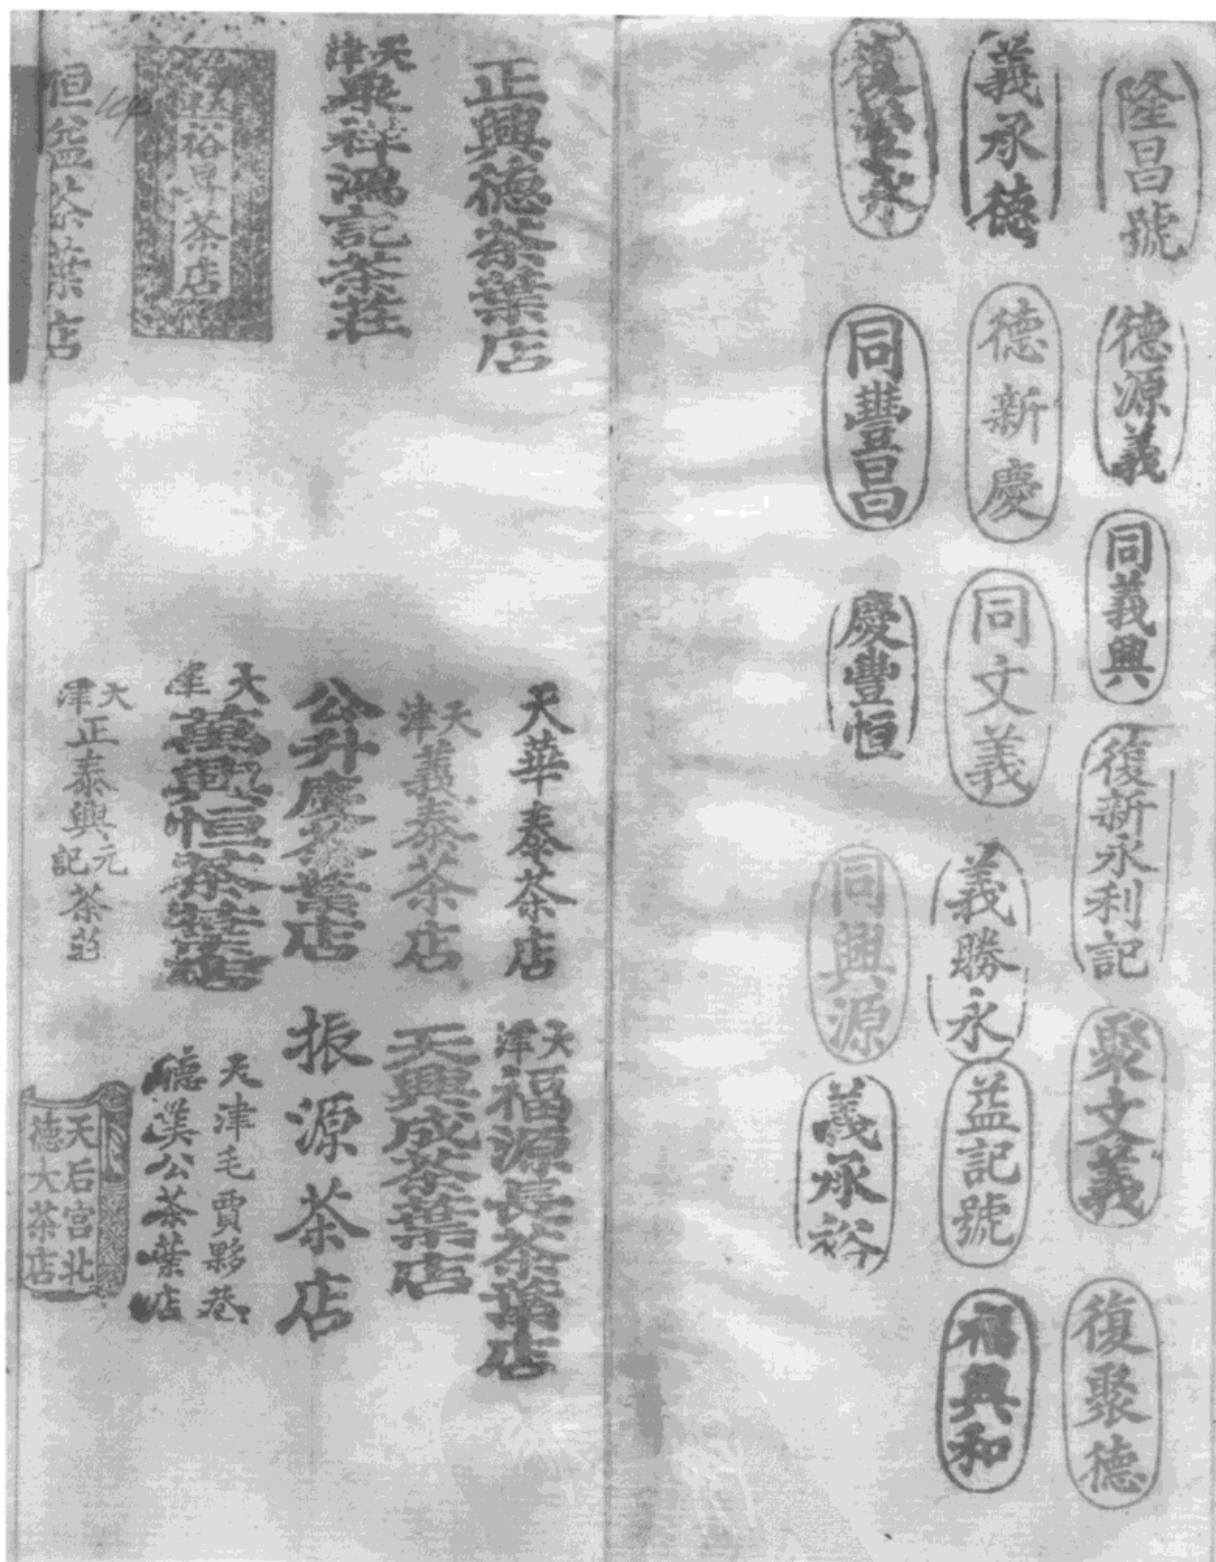 隆昌號
德源義
同義興
復新永利記
聚文義
復聚德
義承德
德新慶
同文義
義勝永
益記號
福興和
復豐永
同豐昌
慶豐恒
同興源
義承裕
正興德茶葉店
天津
泉祥鴻記茶莊
天津
裕昇茶店
恒益茶葉店
天華泰茶店
天津
義泰茶店
公升慶茶葉店
天津
萬興恒茶葉店
天津
正泰興元記茶莊
天津
福源長茶葉店
天興成茶葉店
振源茶店
天津毛賈夥巷
公茶葉店
天后宮北
德大茶店